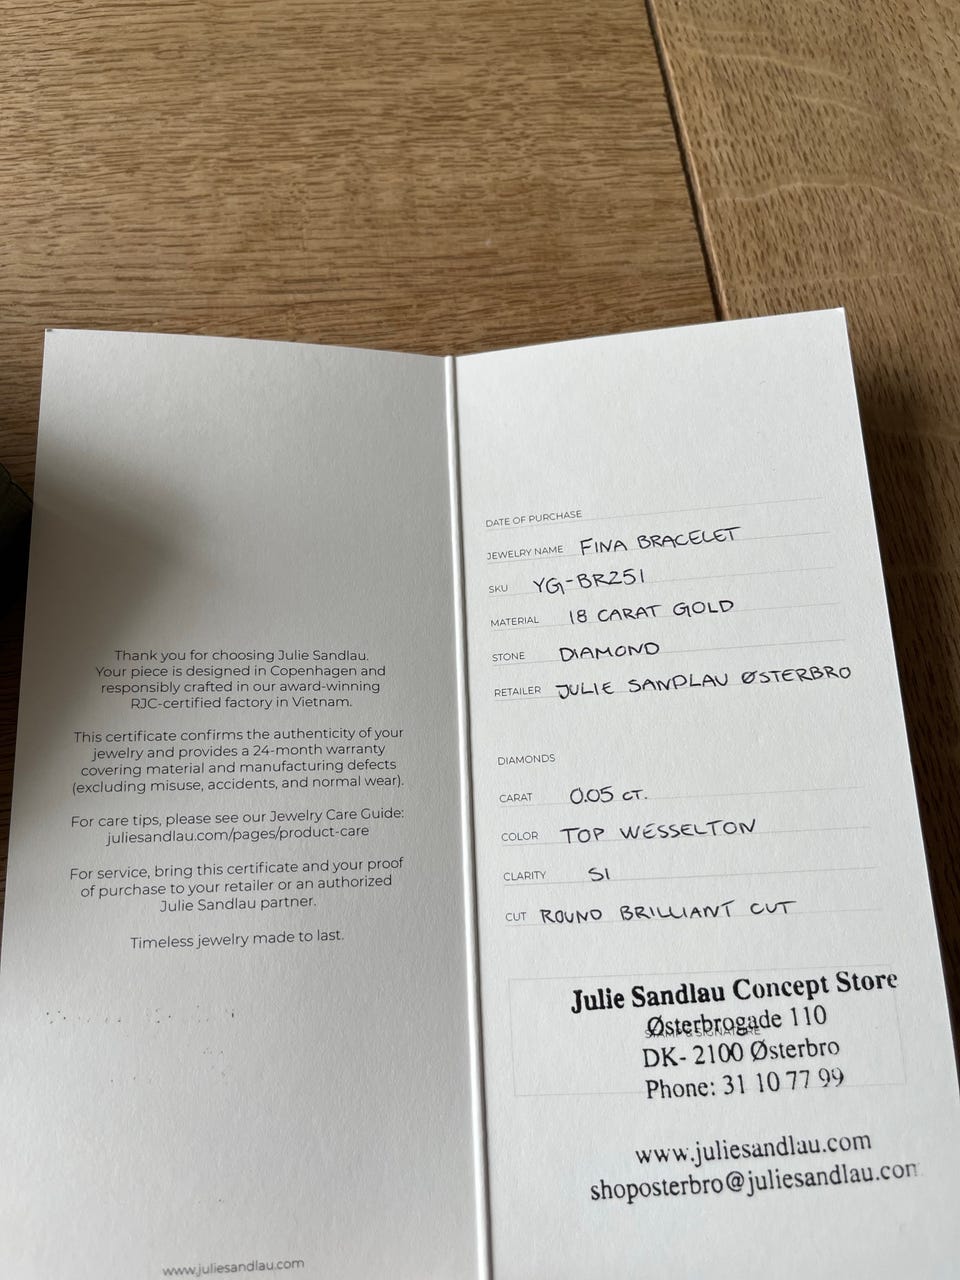 Thank you for choosing Julie Sandlau.
Your piece is designed in Copenhagen and
responsibly crafted in our award-winning
RJC-certified factory in Vietnam.
This certificate confirms the authenticity of your
jewelry and provides a 24-month warranty
covering material and manufacturing defects
(excluding misuse, accidents, and normal wear).
For care tips, please see our Jewelry Care Guide:
juliesandlau.com/pages/product-care
For service, bring this certificate and your proof
of purchase to your retailer or an authorized
Julie Sandlau partner.
Timeless jewelry made to last.
www.juliesandlau.com
DATE OF PURCHASE
JEWELRY NAME FINA BRACELET
SKU YG-BR251
MATERIAL 18 CARAT GOLD
STONE DIAMOND
RETAILER JULIE SANDLAU ØSTERBRO
DIAMONDS
CARAT 0.05 CT.
COLOR TOP WESSELTON
CLARITY SI
CUT ROUND BRILLIANT CUT
Julie Sandlau Concept Store
Østerbrogade 110
STAMP & SIGNATURE
DK- 2100 Østerbro
Phone: 31 10 77 99
www.juliesandlau.com
shoposterbro@juliesandlau.com